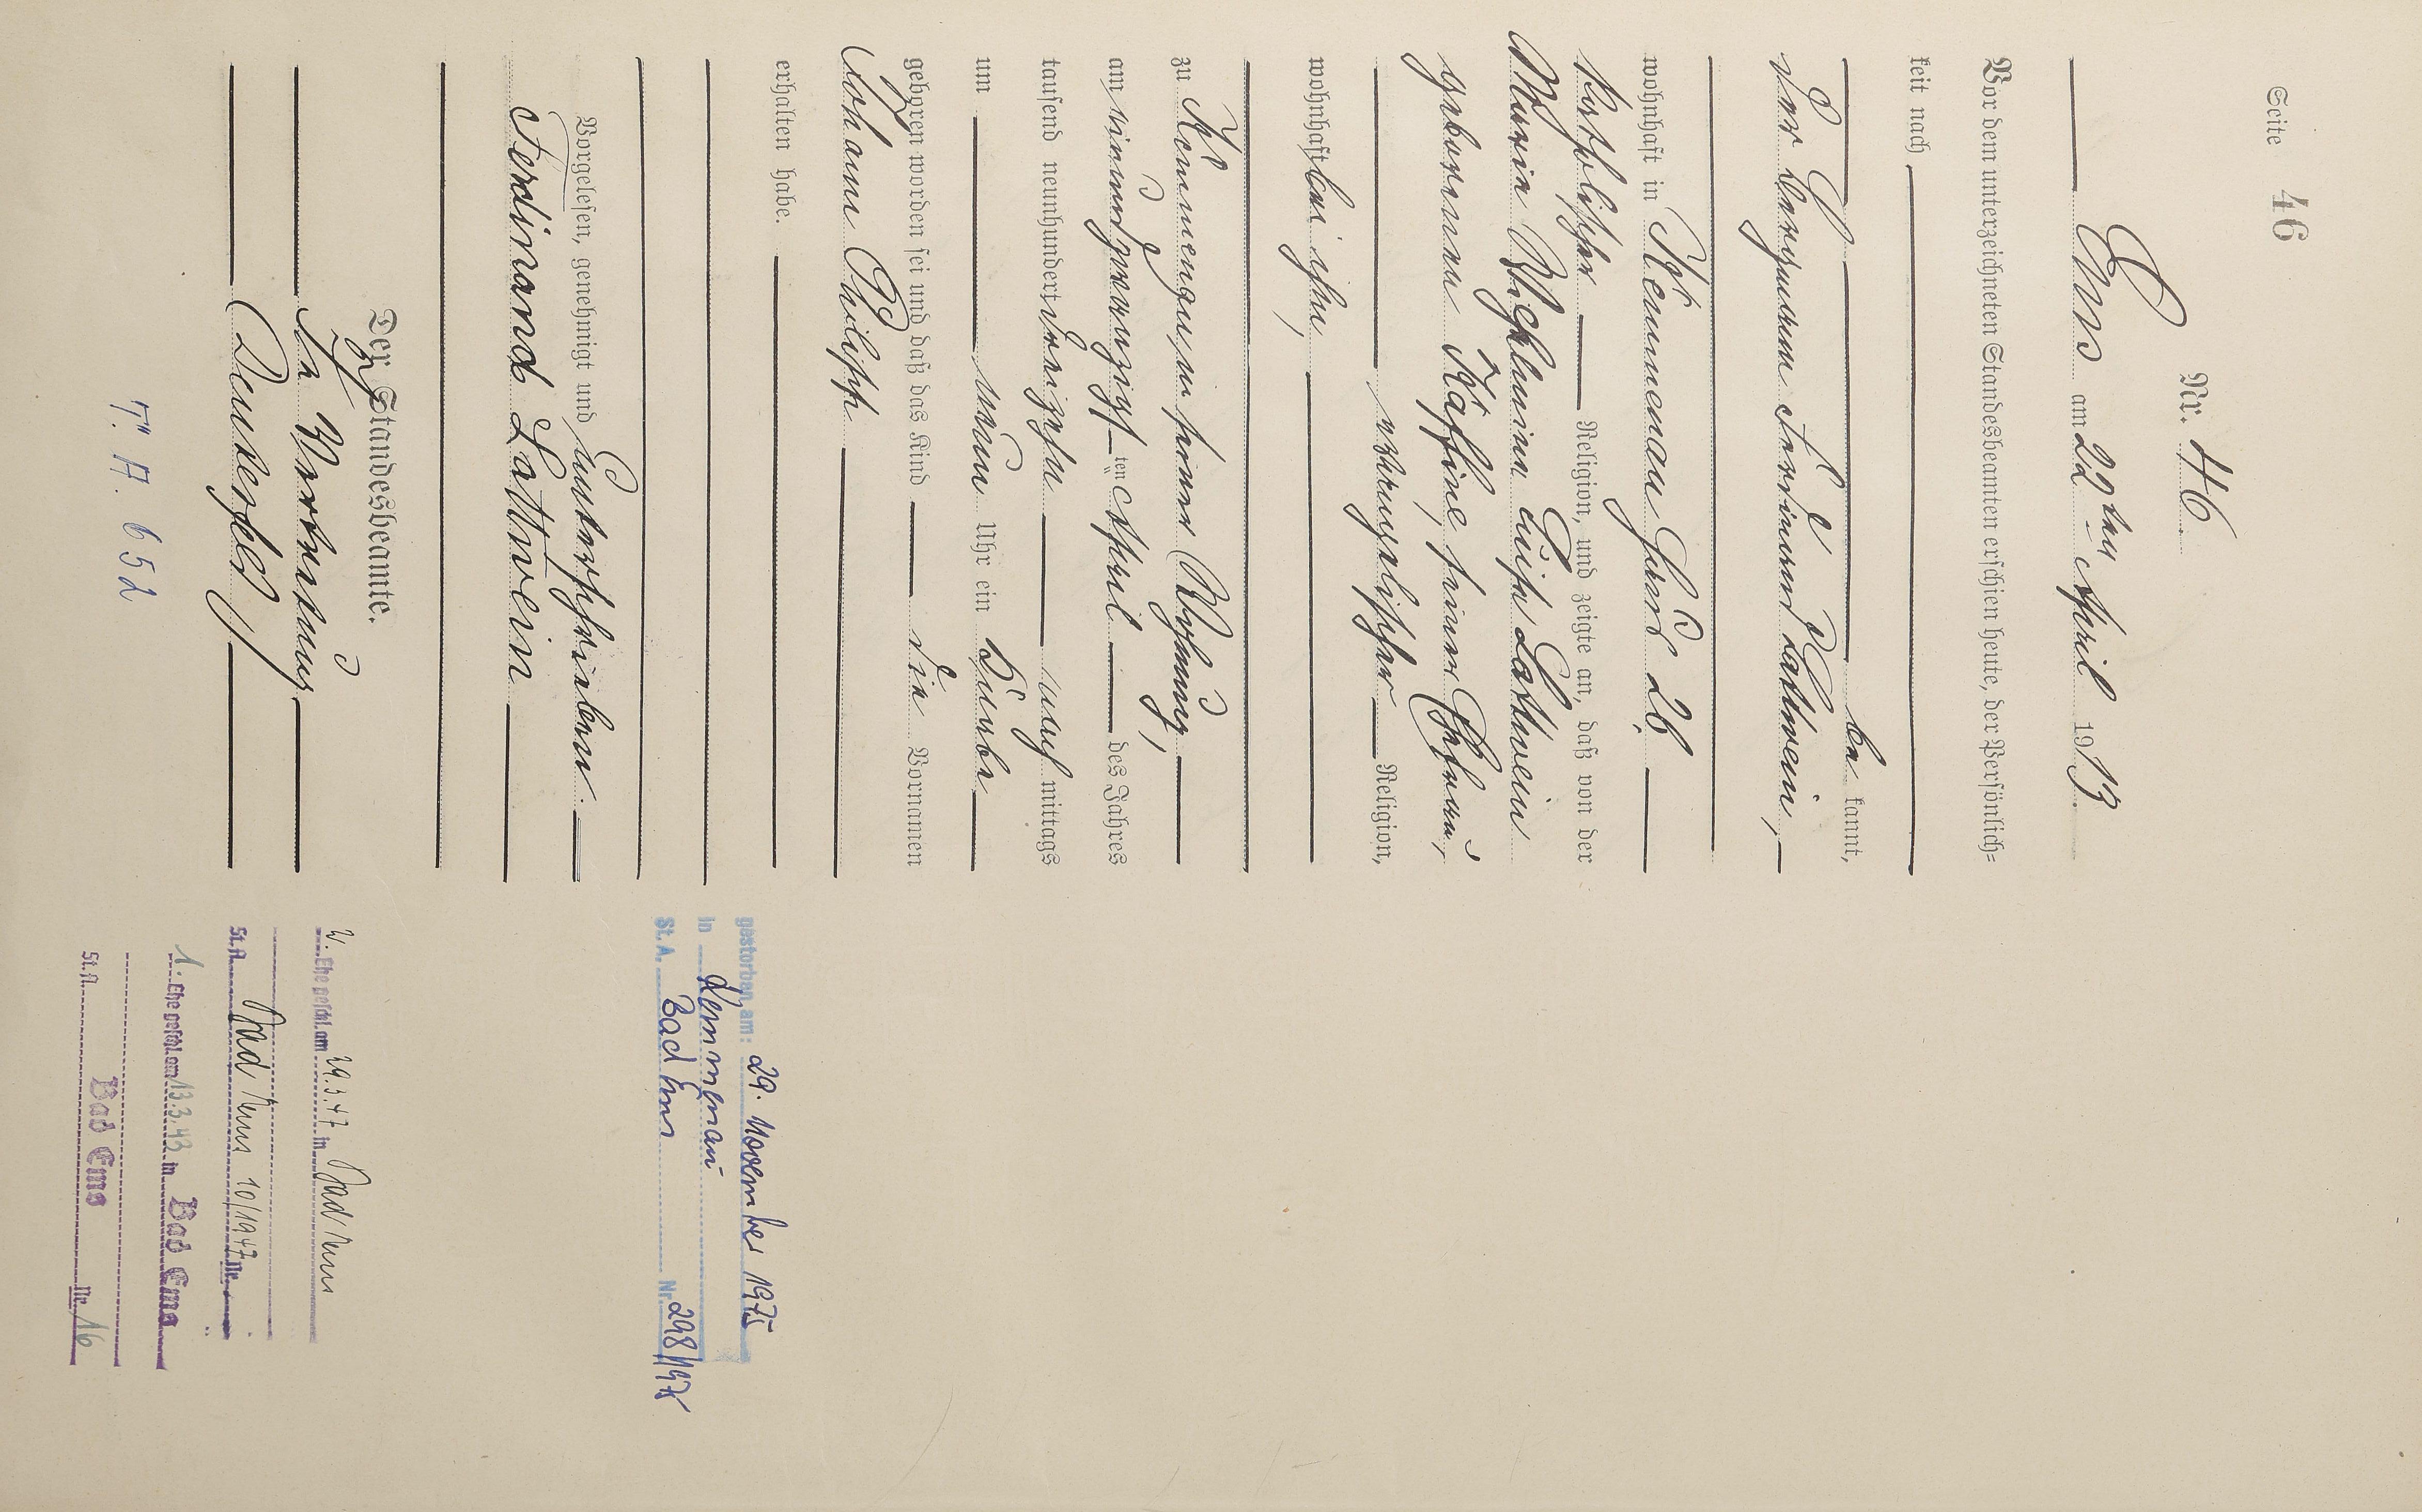 Seite 46
Nr. 46.
Ems am 22ten April 1913.
Vor dem unterzeichneten Standesbeamten erschien heute, der Persönlich=
keit nach
be kannt,
der Bergmann Ferdinand Lattwein,
wohnhaft in Kemmenau Haus 26
katholischer Religion, und zeigte an, daß von der
Maria Wilhelmina Luise Lattwein
geborenen Kaffine, seiner Ehefrau,
evangelischer Religion,
wohnhaft bei ihm,
zu Kemmenau, in seiner Wohnung,
am einundzwanzigsten April des Jahres
tausend neunhundert dreizehn nach mittags
um neun Uhr ein Knabe
geboren worden sei und daß das Kind die Vornamen
Johann Philipp
erhalten habe.
Vorgelesen, genehmigt und unterschrieben
Ferdinand Lattwein
Der Standesbeamte.
In Vertretung
T. A. 652
gestorben am: 29. November 1975
in Kemmenau
St. A. Bad Ems Nr. 298/1975
2. Ehe geschl. am 29.3.47 in Bad Ems
St. A. Bad Ems 10/1947 Nr.
1. Ehe geschl. am 13.3.43 in Bad Ems
St. A. Bad Ems Nr. 16